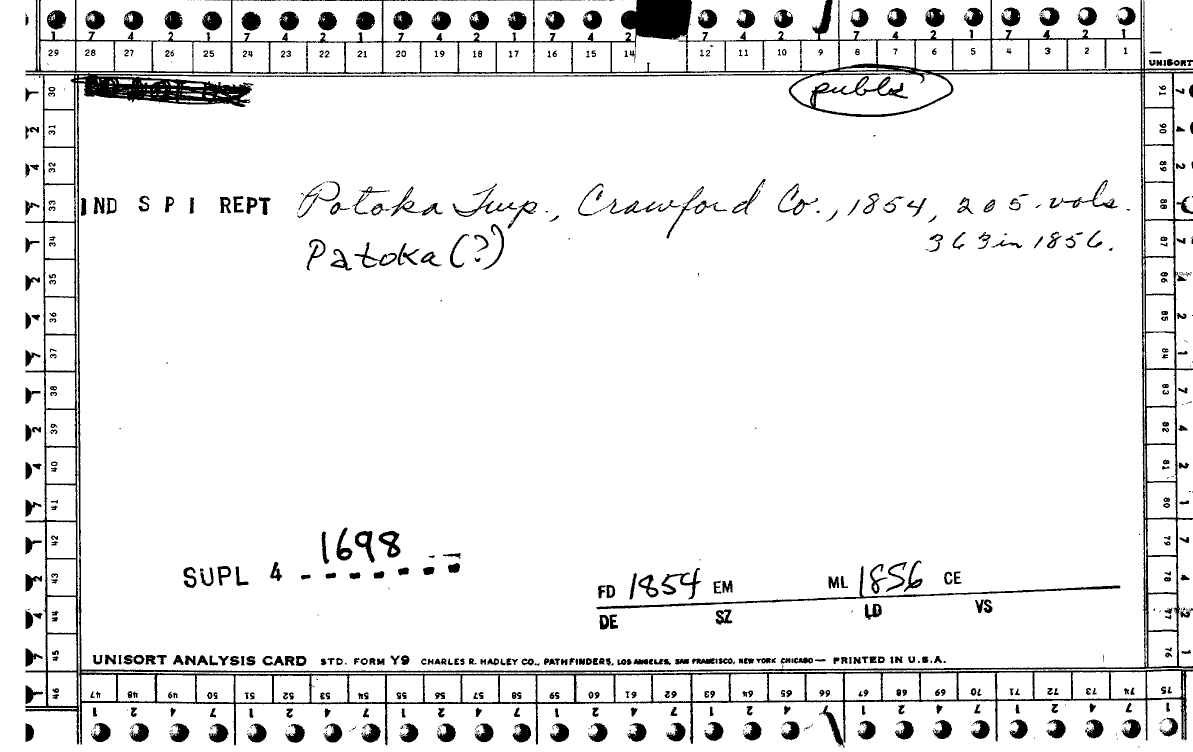 7 4 2 1 7 4 2 1 7 4 2 1 7 4 2 7 4 2 1 7 4 2 1 7 4 2 1
29 28 27 26 25 24 23 22 21 20 19 18 17 16 15 14 12 11 10 9 8 7 6 5 4 3 2 1
UNISORT
public
IND S P I REPT Potoka Twp., Crawford Co., 1854, 205 vols.
363 in 1856.
Patoka (?)
1698
SUPL 4 - - - - - - -
FD 1854 EM ML 1856 CE
DE SZ LD VS
UNISORT ANALYSIS CARD STD. FORM Y9 CHARLES R. HADLEY CO., PATHFINDERS, LOS ANGELES, SAN FRANCISCO, NEW YORK CHICAGO — PRINTED IN U.S.A.
30 31 32 33 34 35 36 37 38 39 40 41 42 43 44 45 46
91 90 89 88 87 86 85 84 83 82 81 80 79 78 77 76 75
47 48 49 50 51 52 53 54 55 56 57 58 59 60 61 62 63 64 65 66 67 68 69 70 71 72 73 74 75
1 2 4 7 1 2 4 7 1 2 4 7 1 2 4 7 1 2 4 7 1 2 4 7 1 2 4 7 1